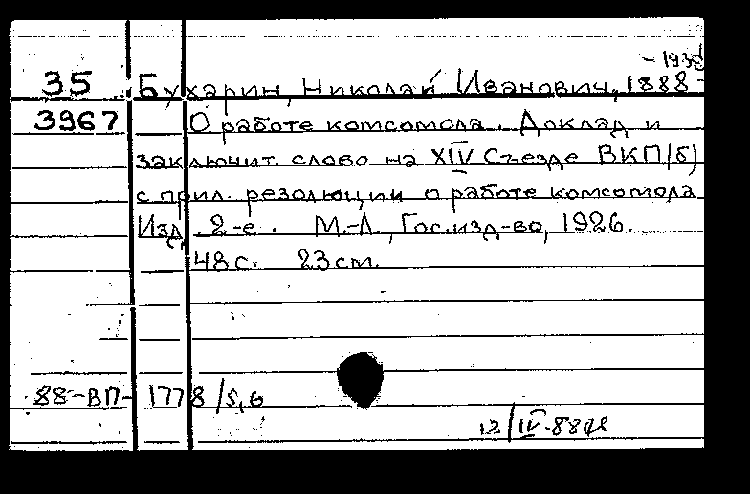 - 1938
35 Бухарин, Николай Иванович, 1888-
3967 О работе комсомола. Доклад и
заключит. слово на XIV Съезде ВКП(б)
с прил. резолюции о работе комсомола
Изд. 2-е. М.-Л., Гос.изд-во, 1926.
48 с. 23 cm.
88-ВП-1778/5,6
12/IV-88